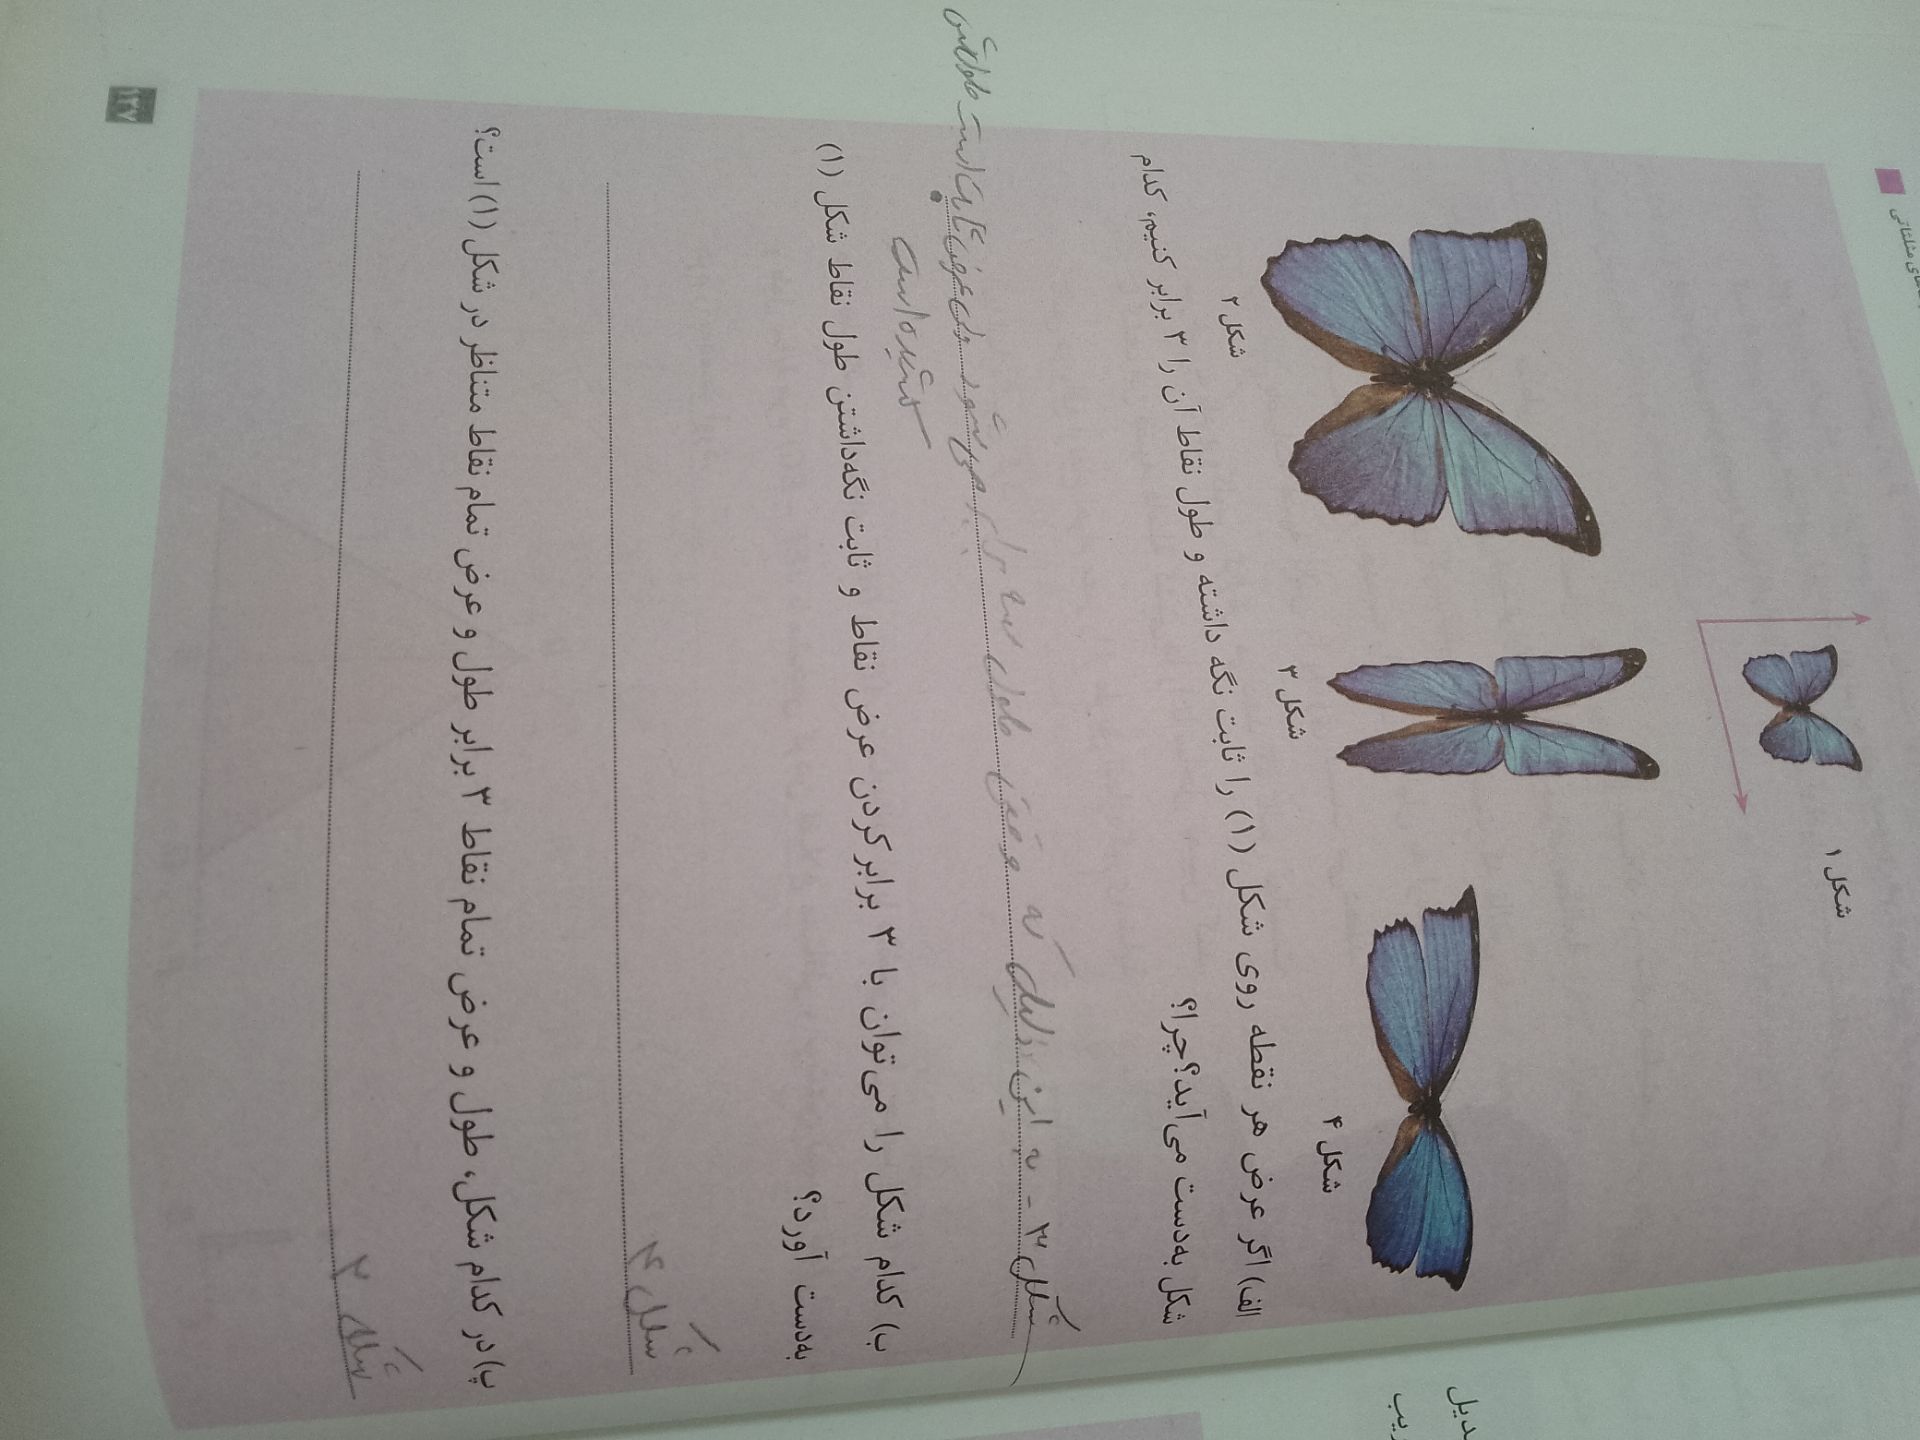 شکل ۱
شکل ۲
شکل ۳
شکل ۴
الف) اگر عرض هر نقطه روی شکل (۱) را ثابت نگه داشته و طول نقاط آن را ۳ برابر کنیم، کدام
شکل به‌دست می‌آید؟ چرا؟
شکل ۳ - به این دلیل که وقتی طول سه برابر می‌شود ولی عرض ثابت است طولش
کشیده است
ب) کدام شکل را می‌توان با ۳ برابر کردن عرض نقاط و ثابت نگه‌داشتن طول نقاط شکل (۱)
به‌دست آورد؟
شکل ۴
پ) در کدام شکل، طول و عرض تمام نقاط ۳ برابر طول و عرض تمام نقاط متناظر در شکل (۱) است؟
شکل ۲
۱۲۷